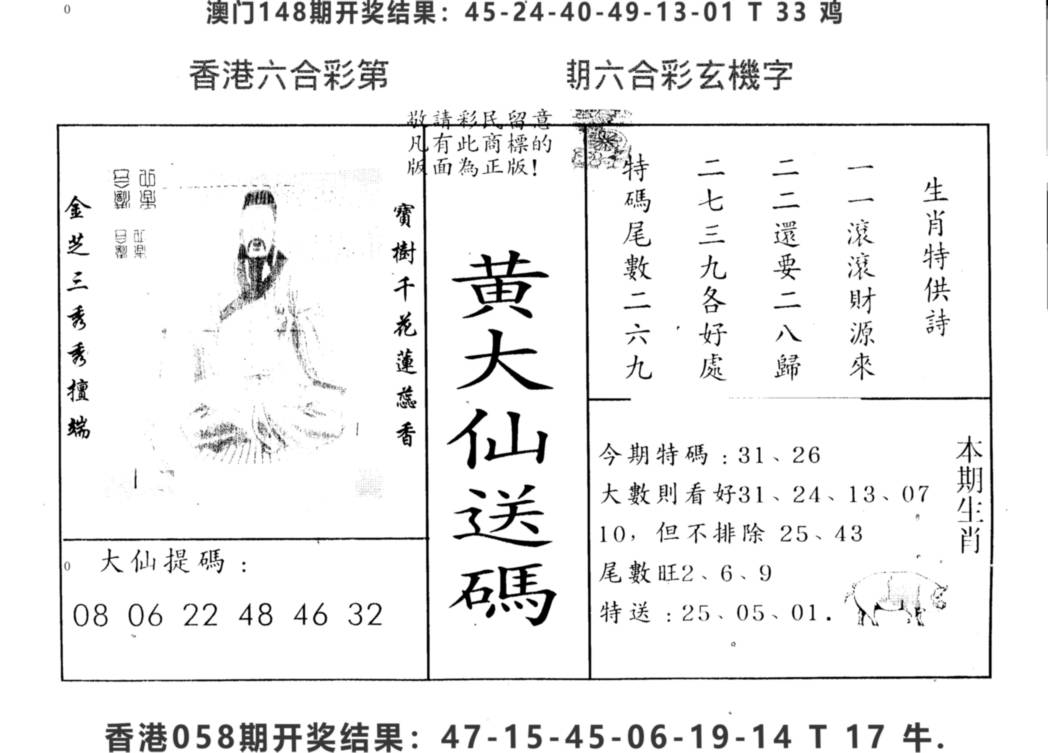 澳门148期开奖结果：45-24-40-49-13-01 T 33 鸡
香港六合彩第 期六合彩玄機字
敬請彩民留意
凡有此商標的
版面為正版！
金芝三秀秀擅端
寶樹千花蓮蕊香
大仙提碼：
08 06 22 48 46 32
黄大仙送碼
生肖特供詩
一一滾滾財源來
二二還要二八歸
二七三九各好處
特碼尾數二六九
本期生肖
今期特碼：31、26
大數則看好31、24、13、07
10，但不排除 25、43
尾數旺2、6、9
特送：25、05、01.
香港058期开奖结果：47-15-45-06-19-14 T 17 牛.